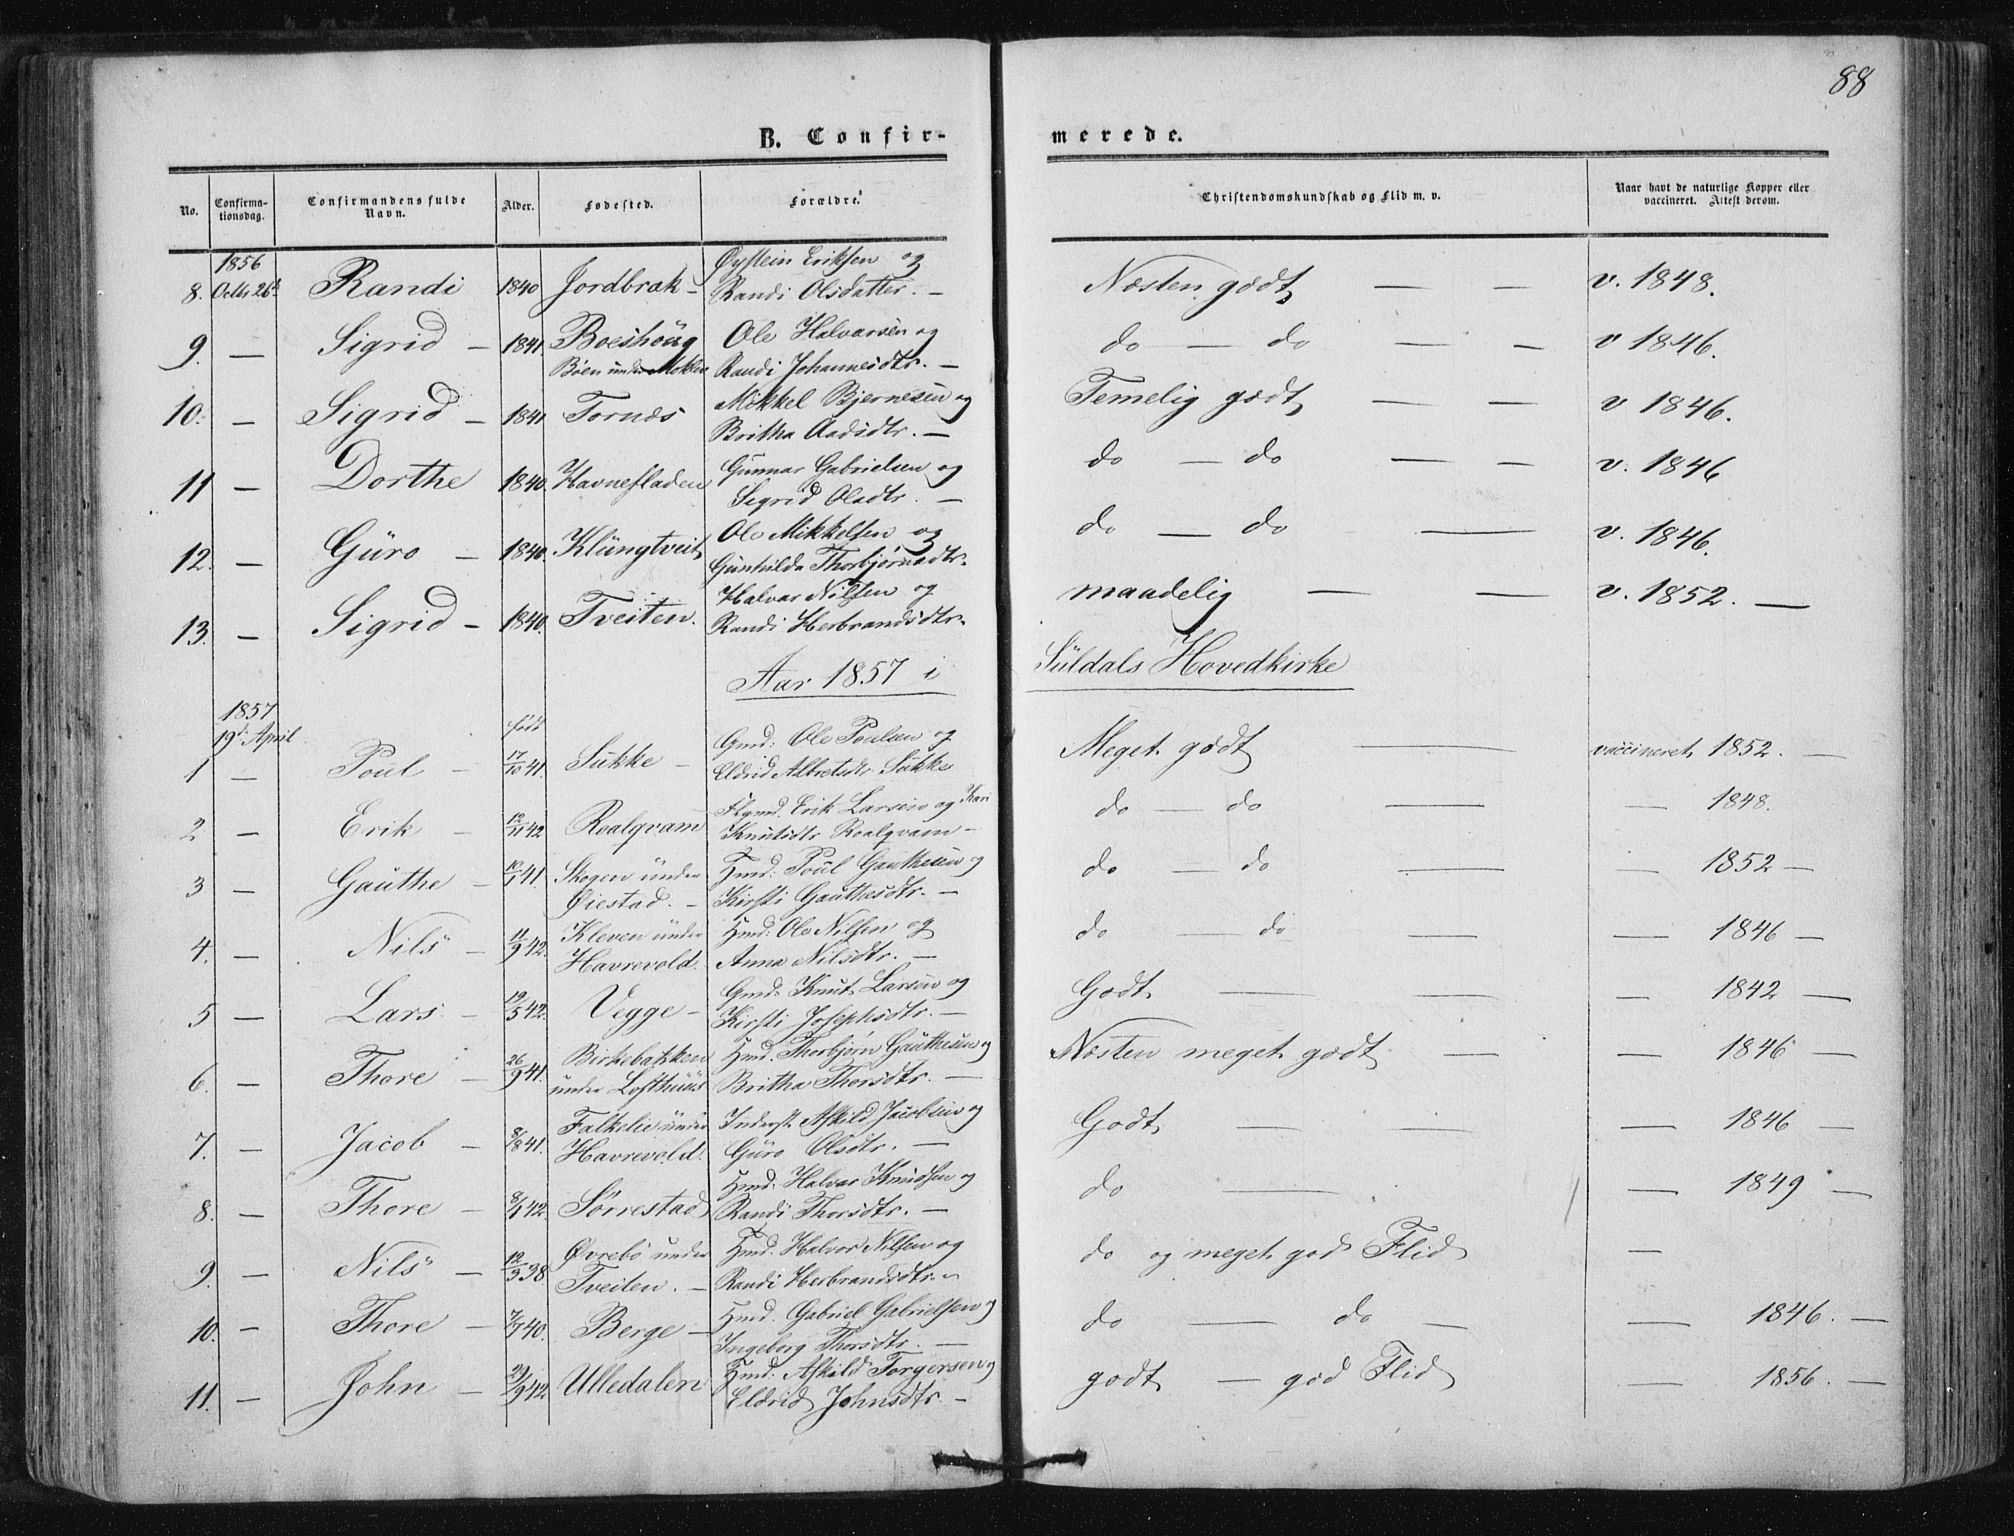 88
B. Confirmerede.
No. Confirmationsdag. Confirmandens fulde Navn. Alder. Fødested. Forældre. Christendomskundskab og Flid m. v. Naar havt de naturlige Kopper eller vaccineret. Attest derom.
1856
8. Octbr 26d Randi 1840 Jordbrak – Øystein Eriksen og Randi Olsdatter. – Næsten godt — — v. 1848.
9. — Sigrid – 1841. Boeshöug Böen under Moklev Ole Halvarsen og Randi Johannesdtr. – do — do — – v 1846.
10. – Sigrid – 1841 Tornes Mikkel Bjernesen og Britha Aadsdtr. – Temelig godt — — v 1846.
11 – Dorthe 1840. Havnefladen Gunnar Gabrielsen og Sigrid Olsdtr. – do — do — – v. 1846
12. – Güro – 1840. Klüngtveit Ole Mikkelsen og Gunhilda Thorbjørnsdtr. do — do — v. 1846.
13. – Sigrid – 1840. Tveiten. Halvar Nilsen og Randi Herbrandsdtr. maadelig — — v. 1852. —
Aar 1857 i Süldals Hovedkirke
1857
19d April født
1 – Poül – 17/10 41. Sükke – Gmd: Ole Poulsen og Eldrid Albretsdtr Sükke Meget godt — vaccineret 1852. —
2 – Erik – 12/11 42 Roalqvam Flgmd. Erik Larsen og Kari Knutsdtr Roalqvam – do — do — — 1848.
3 – Gaüthe – 10/1 41. Skogen ünder Øiestad. – Hmd: Poül Gauthesen og Kirsti Gauthesdtr. – do — do — — 1852 —
4. – Nils – 11/9 42. Kleven ünder Havrevold. Hmd: Ole Nilsen og Anna Nilsdtr. – do — do — — 1846 —
5 – Lars – 19/5 42. Vegge – Gmd: Knut Larsen og Kirsti Josephsdtr. – Godt — — — 1842 —
6. – Thore – 26/9 41. Birkebakken ünder Lofthüüs Hmd. Thorbjørn Gauthesen og Britha Thorsdtr. – Næsten meget godt — — 1846 —
7. – Jacob – 8/8 41. Falkelie ünder Havrevold. Inderst. Askild Jacobsen og Güro Olsdtr. – Godt — — — 1846 —
8. – Thore – 8/1 42. Sørrestad Hmd. Halvar Knudsen og Randi Thorsdtr. – do — — 1849 —
9. – Nils – 12/3 38. Øvrebö under Tveiten. – Hmd. Halvor Nilsen og Randi Herbrandsdtr. – do og meget god Flid —
10. – Thore – 7/7 40. Berge – Hmd. Gabriel Gabrielsen og Ingeborg Thorsdtr. – do — do – — 1846. —
11. – John – 29/9 42 Ulledalen Hmd: Askild Torgersen og Eldrid Johnsdtr. – godt — god Flid — 1856. —